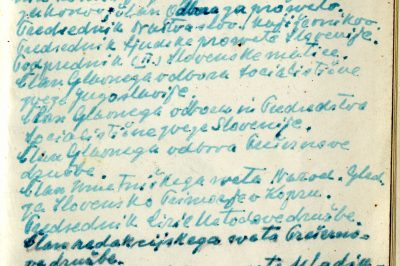 zakonov, Član Odbora za prosveto.
Predsednik Društva slov. književnikov.
Predsednik Ljudske prosvete Slovenije.
Podpredsednik (II.) Slovenske matice.
Član Glavnega odbora Socialistične
zveze Jugoslavije.
Član Glavnega odbora in Predsedstva
Socialistične zveze Slovenije.
Član Glavnega odbora Prešernove
družbe.
Član Umetniškega sveta Narod. Gled.
za Slovensko Primorje v Kopru.
Predsednik Ciril Metodove družbe.
Član redakcijskega sveta Prešerno-
ve družbe.
sveta Mladin